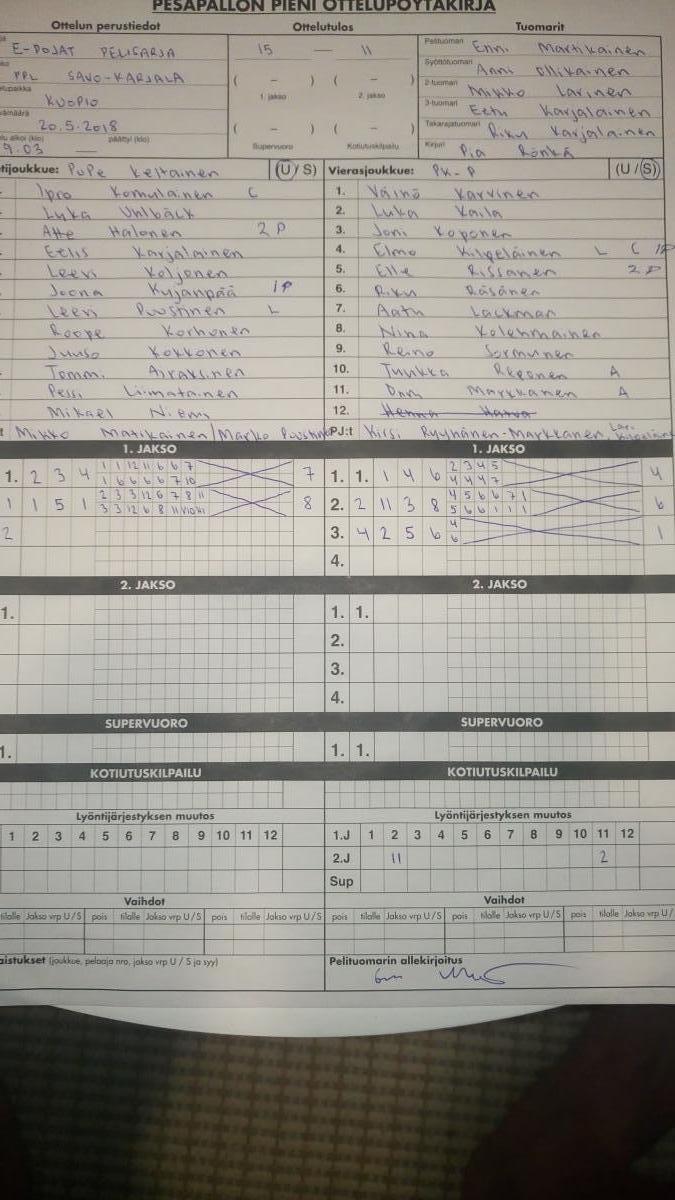 PESÄPALLON PIENI OTTELUPÖYTÄKIRJA
Ottelun perustiedot
Ottelutulos
Tuomarit
E-POJAT PELISARJA
15 — 11
Pelituomari Enni Martikainen
PPL SAVO-KARJALA
( – ) ( – )
Syöttötuomari Anni Ollikainen
KUOPIO
1. jakso 2. jakso
2-tuomari Mikko Larinen
20.5.2018
3-tuomari Eetu Karjalainen
( – ) ( – )
Takarajatuomari Riku Karjalainen
9.03 — päättyi (klo)
Supervuoro Kotiutuskilpailu
Kirjuri Pia Rönkä
tijoukkue: PuPe Keltainen (U / S)
Vierasjoukkue: PK-P (U / S)
Komulainen C
1. Väinö Karvinen
Luka Uhlbäck
2. Luka Kaila
Atte Halonen 2P
3. Joni Koponen
Eelis Karjalainen
4. Elmo L C 1P
Leevi Koljonen
5. Elle Rissanen 2P
Joona Kujanpää 1P
6. Riku Räsänen
Leevi Puustinen L
7. Aatu Lackman
Roope Korhonen
8. Nina Kolehmainen
Juuso Kokkonen
9. Reino Sormunen
Tommi Airaksinen
10. Tuukka Reponen A
Pessi Liimatainen
11. Onni Markkanen A
Mikael Niemi
12. Henna
Mikko Matikainen / Marko Puustinen
PJ:t Kirsi Ryynänen-Markkanen,
1. JAKSO
1. JAKSO
1. 2 3 4 1 1 12 11 6 6 7 7
1 6 6 6 6 7 10
1. 1. 1 4 6 2 3 4 5 4
4 4 4 7
1 1 5 1 2 3 3 12 6 7 8 11 8
3 3 12 6 8 11
2. 2 11 3 8 4 5 6 6 7 1 6
5 6 6 1 1 1
2
3. 4 2 5 6 4 1
6
4.
2. JAKSO
2. JAKSO
1.
1. 1.
2.
3.
4.
SUPERVUORO
SUPERVUORO
1.
1. 1.
KOTIUTUSKILPAILU
KOTIUTUSKILPAILU
Lyöntijärjestyksen muutos
Lyöntijärjestyksen muutos
1 2 3 4 5 6 7 8 9 10 11 12
1.J 1 2 3 4 5 6 7 8 9 10 11 12
2.J 11 2
Sup
Vaihdot
Vaihdot
tilalle Jakso vrp U/S pois tilalle Jakso vrp U/S pois tilalle Jakso vrp U/S
pois tilalle Jakso vrp U/S pois tilalle Jakso vrp U/S pois tilalle Jakso vrp U/
aistukset (joukkue, pelaaja nro, jakso vrp U / S ja syy)
Pelituomarin allekirjoitus